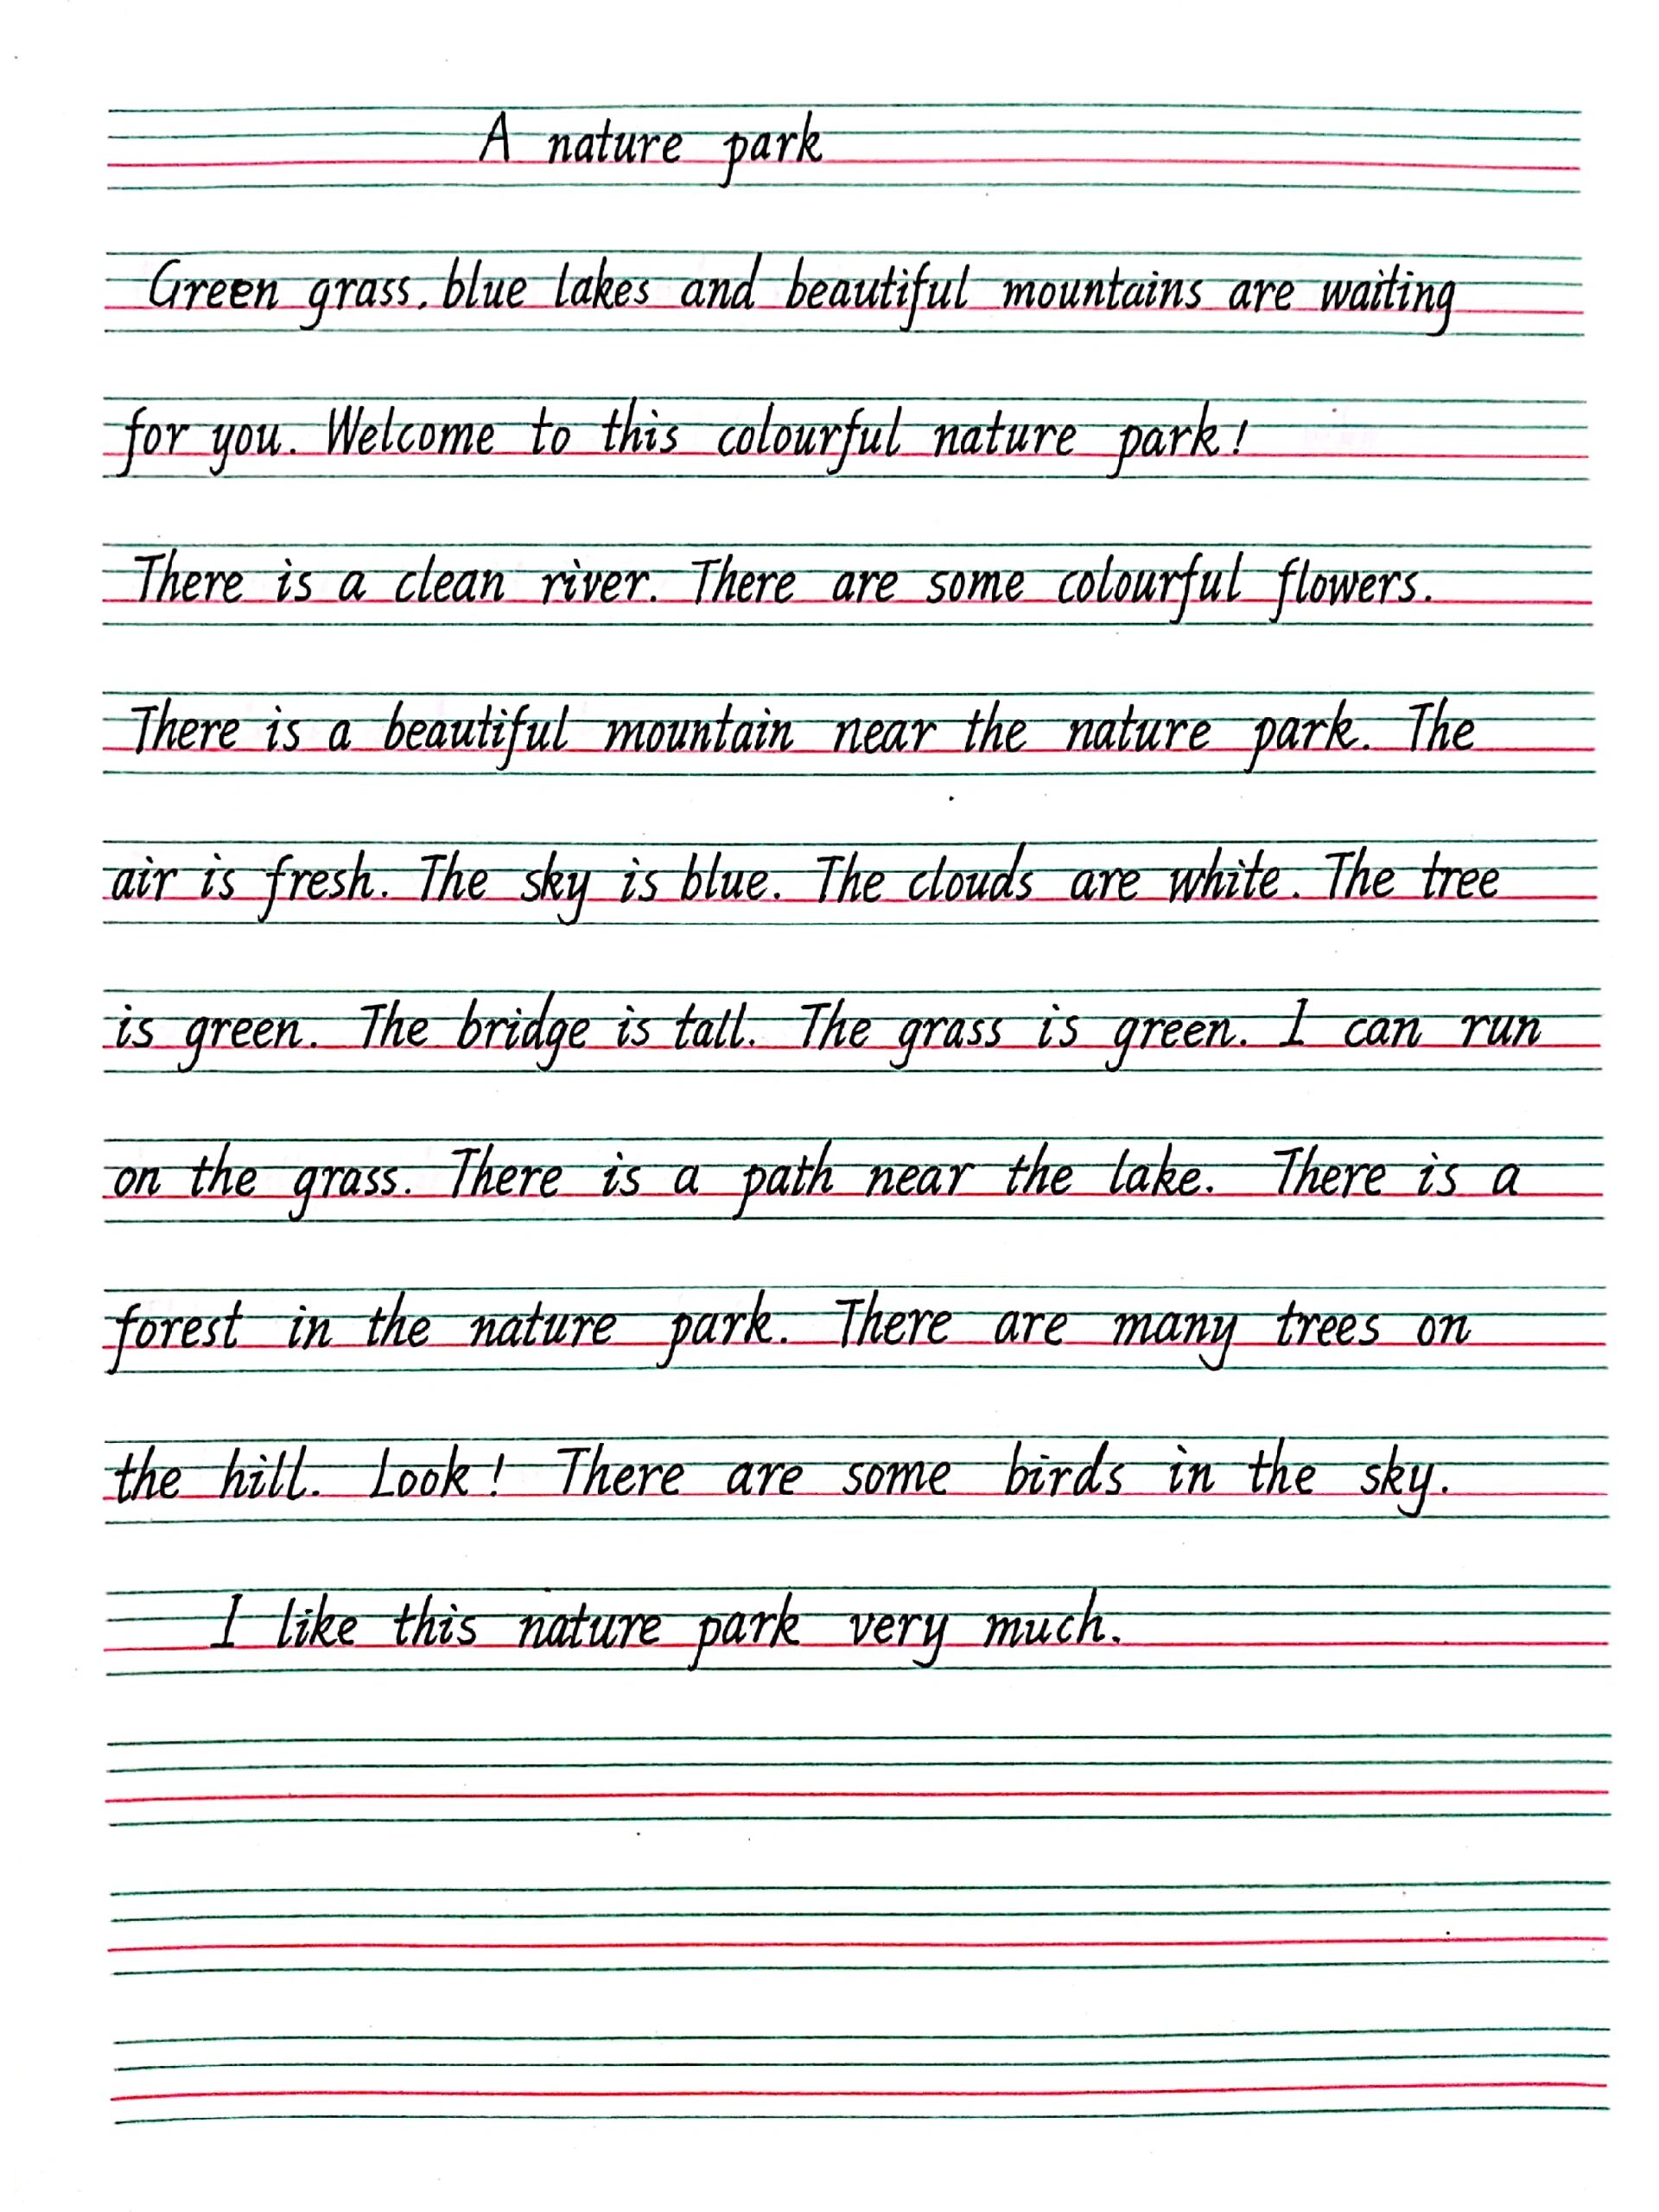 A nature park
Green grass, blue lakes and beautiful mountains are waiting
for you. Welcome to this colourful nature park!
There is a clean river. There are some colourful flowers.
There is a beautiful mountain near the nature park. The
air is fresh. The sky is blue. The clouds are white. The tree
is green. The bridge is tall. The grass is green. I can run
on the grass. There is a path near the lake. There is a
forest in the nature park. There are many trees on
the hill. Look! There are some birds in the sky.
I like this nature park very much.